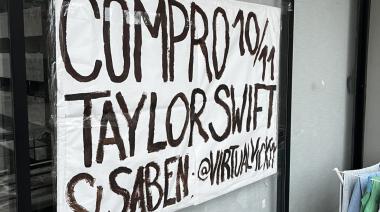 COMPRO 10/11
TAYLOR SWIFT
SI SABEN: @VIRTUALVICKY